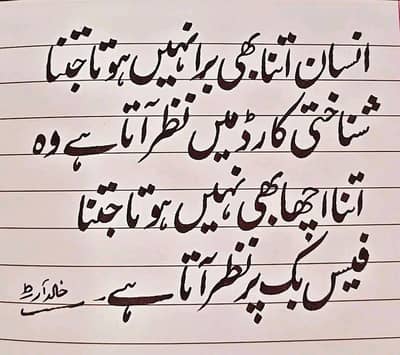 انسان اتنا بھی برا نہیں ہوتا جتنا
شناختی کارڈ میں نظر آتا ہے وہ
اتنا اچھا بھی نہیں ہوتا جتنا
فیس بک پر نظر آتا ہے۔
خالد آرٹ